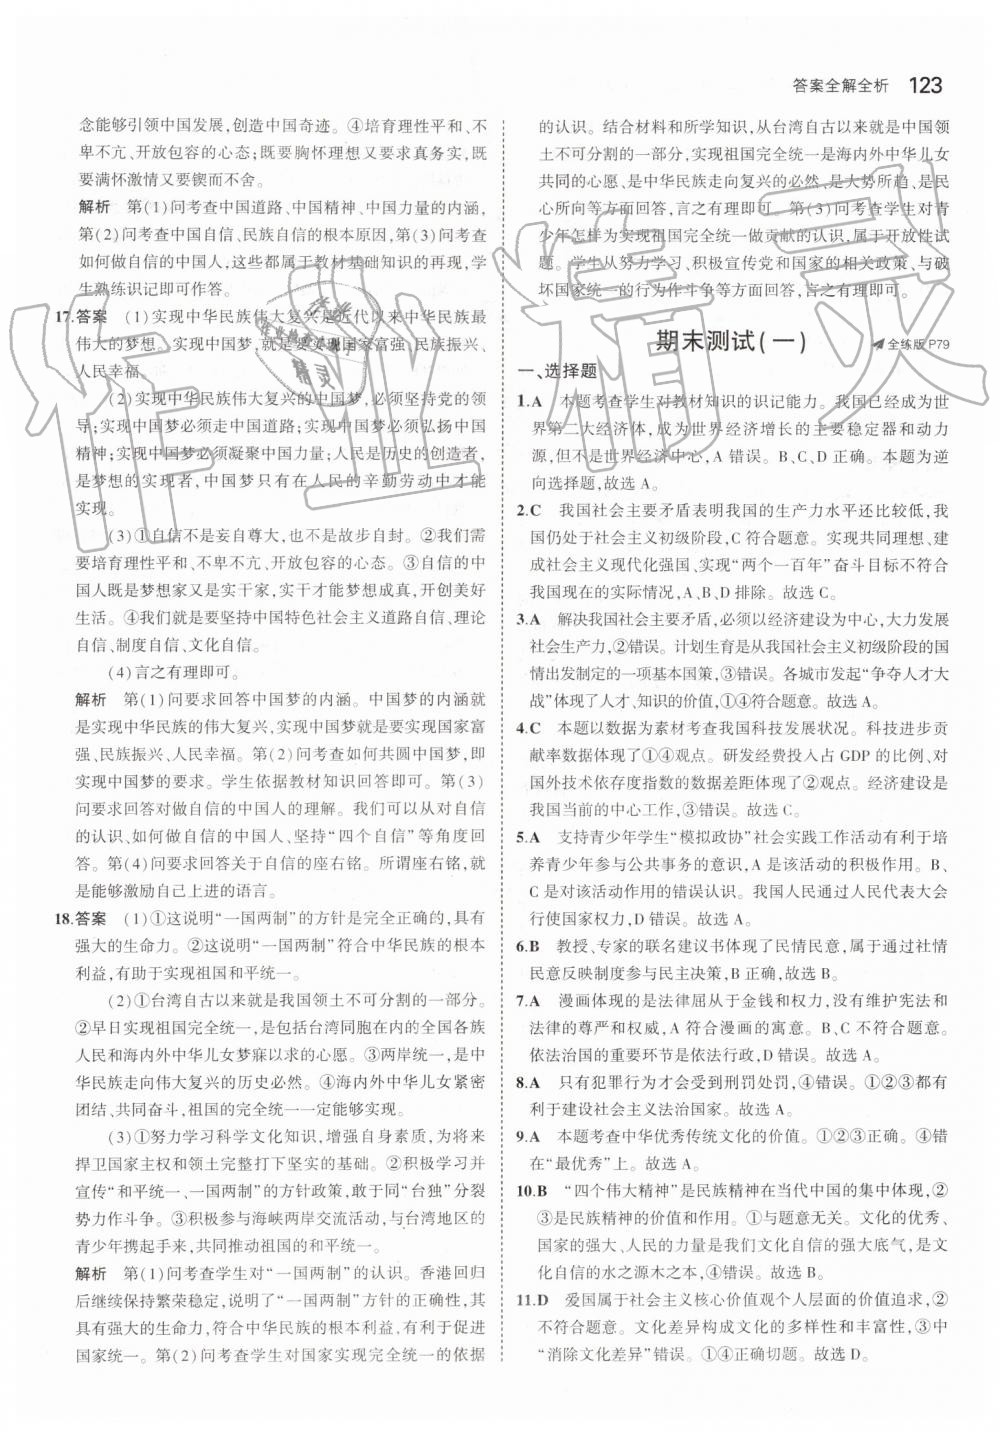 答案全解全析 123
念能够引领中国发展,创造中国奇迹。④培育理性平和、不
卑不亢、开放包容的心态;既要胸怀理想又要求真务实,既
要满怀激情又要锲而不舍。
解析 第(1)问考查中国道路、中国精神、中国力量的内涵,
第(2)问考查中国自信、民族自信的根本原因,第(3)问考查
如何做自信的中国人,这些都属于教材基础知识的再现,学
生熟练识记即可作答。
17.答案 (1)实现中华民族伟大复兴是近代以来中华民族最
伟大的梦想。实现中国梦,就是要实现国家富强、民族振兴、
人民幸福。
(2)实现中华民族伟大复兴的中国梦,必须坚持党的领
导;实现中国梦必须走中国道路;实现中国梦必须弘扬中国
精神;实现中国梦必须凝聚中国力量;人民是历史的创造者,
是梦想的实现者,中国梦只有在人民的辛勤劳动中才能
实现。
(3)①自信不是妄自尊大,也不是故步自封。②我们需
要培育理性平和、不卑不亢、开放包容的心态。③自信的中
国人既是梦想家又是实干家,实干才能梦想成真,开创美好
生活。④我们就是要坚持中国特色社会主义道路自信、理论
自信、制度自信、文化自信。
(4)言之有理即可。
解析 第(1)问要求回答中国梦的内涵。中国梦的内涵就
是实现中华民族的伟大复兴,实现中国梦就是实现国家富
强、民族振兴、人民幸福。第(2)问考查如何共圆中国梦,即
实现中国梦的要求。学生依据教材知识回答即可。第(3)
问要求回答对做自信的中国人的理解。我们可以从对自信
的认识、如何做自信的中国人、坚持“四个自信”等角度回
答。第(4)问要求回答关于自信的座右铭。所谓座右铭,就
是能够激励自己上进的语言。
18.答案 (1)①这说明“一国两制”的方针是完全正确的,具有
强大的生命力。②这说明“一国两制”符合中华民族的根本
利益,有助于实现祖国和平统一。
(2)①台湾自古以来就是我国领土不可分割的一部分。
②早日实现祖国完全统一,是包括台湾同胞在内的全国各族
人民和海内外中华儿女梦寐以求的心愿。③两岸统一,是中
华民族走向伟大复兴的历史必然。④海内外中华儿女紧密
团结、共同奋斗,祖国的完全统一一定能够实现。
(3)①努力学习科学文化知识,增强自身素质,为将来
捍卫国家主权和领土完整打下坚实的基础。②积极学习并
宣传“和平统一、一国两制”的方针政策,敢于同“台独”分裂
势力作斗争。③积极参与海峡两岸交流活动,与台湾地区的
青少年携起手来,共同推动祖国的和平统一。
解析 第(1)问考查学生对“一国两制”的认识。香港回归
后继续保持繁荣稳定,说明了“一国两制”方针的正确性,其
具有强大的生命力,符合中华民族的根本利益,有利于促进
国家统一。第(2)问考查学生对国家实现完全统一的依据
的认识。结合材料和所学知识,从台湾自古以来就是中国领
土不可分割的一部分,实现祖国完全统一是海内外中华儿女
共同的心愿、是中华民族走向复兴的必然、是大势所趋、是民
心所向等方面回答,言之有理即可。第(3)问考查学生对青
少年怎样为实现祖国完全统一做贡献的认识,属于开放性试
题。学生从努力学习、积极宣传党和国家的相关政策、与破
坏国家统一的行为作斗争等方面回答,言之有理即可。
期末测试(一) 全练版 P79
一、选择题
1.A 本题考查学生对教材知识的识记能力。我国已经成为世
界第二大经济体,成为世界经济增长的主要稳定器和动力
源,但不是世界经济中心,A 错误。B、C、D 正确。本题为逆
向选择题,故选 A。
2.C 我国社会主要矛盾表明我国的生产力水平还比较低,我
国仍处于社会主义初级阶段,C 符合题意。实现共同理想、建
成社会主义现代化强国、实现“两个一百年”奋斗目标不符合
我国现在的实际情况,A、B、D 排除。故选 C。
3.A 解决我国社会主要矛盾,必须以经济建设为中心,大力发展
社会生产力,②错误。计划生育是从我国社会主义初级阶段的国
情出发制定的一项基本国策,③错误。各城市发起“争夺人才大
战”体现了人才、知识的价值,①④符合题意。故选 A。
4.C 本题以数据为素材考查我国科技发展状况。科技进步贡
献率数据体现了①④观点。研发经费投入占 GDP 的比例、对
国外技术依存度指数的数据差距体现了②观点。经济建设是
我国当前的中心工作,③错误。故选 C。
5.A 支持青少年学生“模拟政协”社会实践工作活动有利于培
养青少年参与公共事务的意识,A 是该活动的积极作用。B、
C 是对该活动作用的错误认识。我国人民通过人民代表大会
行使国家权力,D 错误。故选 A。
6.B 教授、专家的联名建议书体现了民情民意,属于通过社情
民意反映制度参与民主决策,B 正确,故选 B。
7.A 漫画体现的是法律屈从于金钱和权力,没有维护宪法和
法律的尊严和权威,A 符合漫画的寓意。B、C 不符合题意。
依法治国的重要环节是依法行政,D 错误。故选 A。
8.A 只有犯罪行为才会受到刑罚处罚,④错误。①②③都有
利于建设社会主义法治国家。故选 A。
9.A 本题考查中华优秀传统文化的价值。①②③正确。④错
在“最优秀”上。故选 A。
10.B “四个伟大精神”是民族精神在当代中国的集中体现,②
③是民族精神的价值和作用。①与题意无关。文化的优秀、
国家的强大、人民的力量是我们文化自信的强大底气,是文
化自信的水之源木之本,④错误。故选 B。
11.D 爱国属于社会主义核心价值观个人层面的价值追求,②
不符合题意。文化差异构成文化的多样性和丰富性,③中
“消除文化差异”错误。①④正确切题。故选 D。
作业精灵
精灵